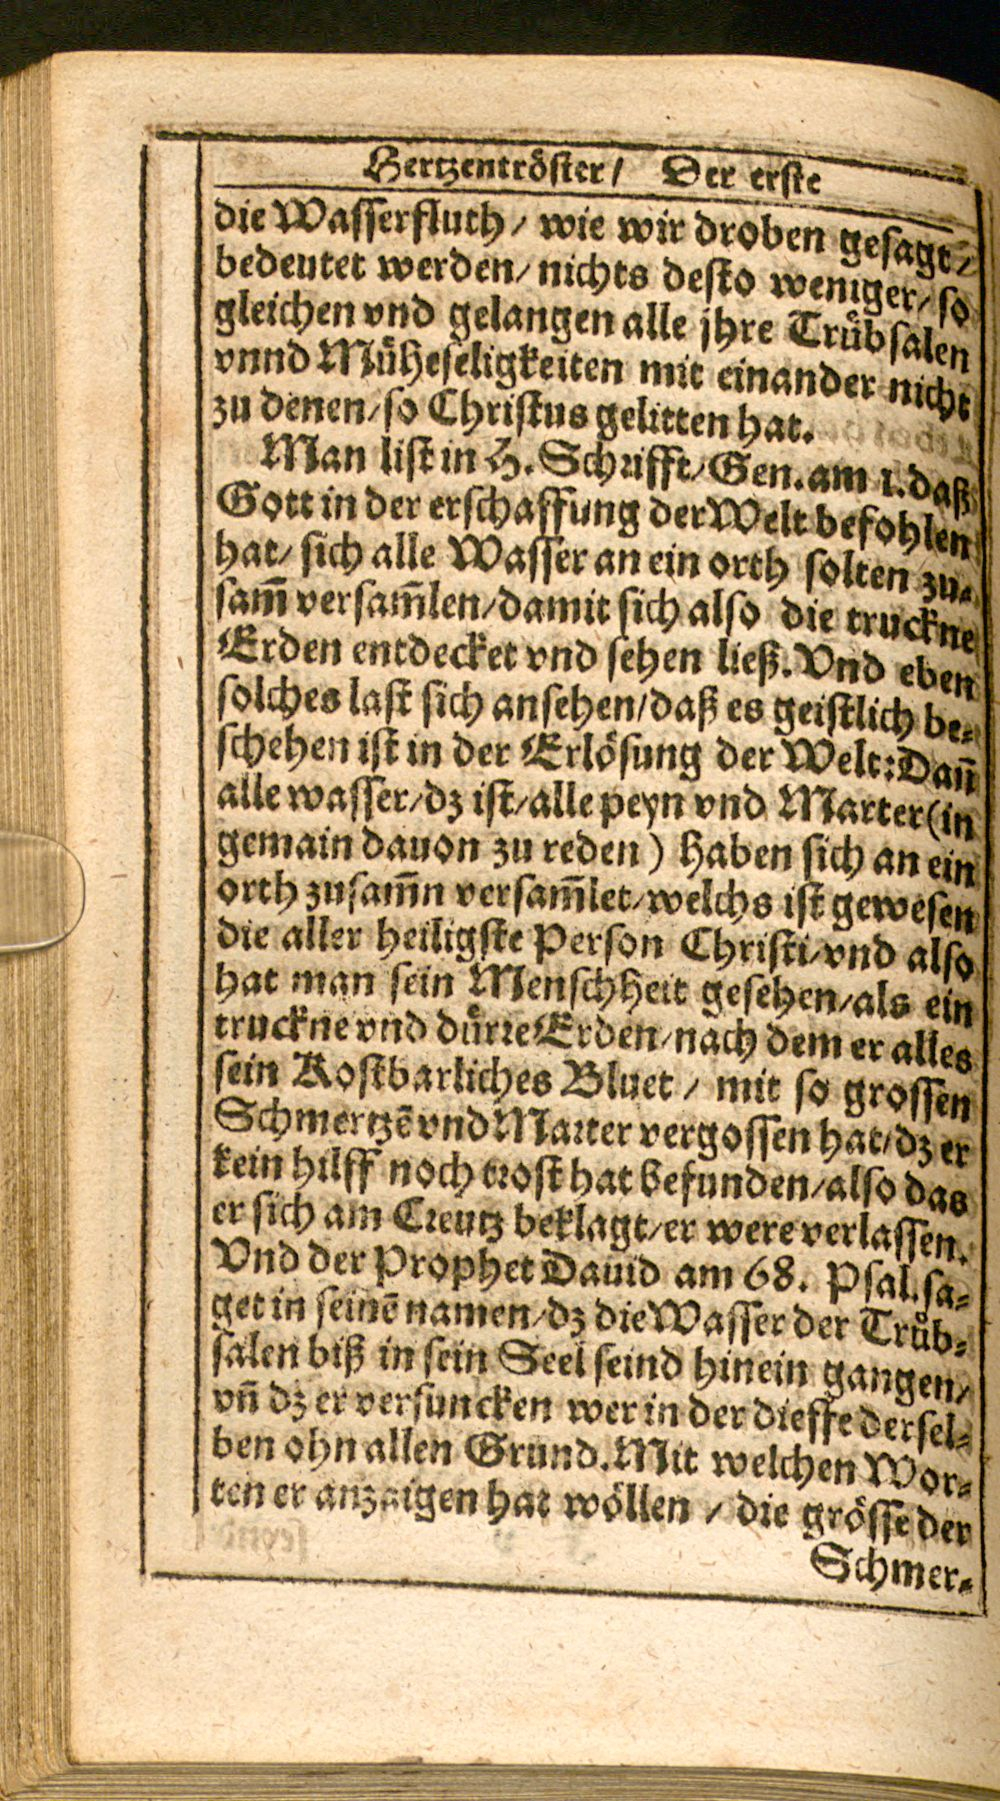 Hertzentröster/ Der erste
die Wasserfluth/ wie wir droben gesagt/
bedeutet werden/ nichts desto weniger/ so
gleichen vnd gelangen alle jhre Trübsalen
vnnd Müheseligkeiten mit einander nicht
zu denen/ so Christus gelitten hat.
Man list in H. Schrifft/ Gen. am 1. daß
Gott in der erschaffung der Welt befohlen
hat/ sich alle Wasser an ein orth solten zu-
sam̄ versam̄len/ damit sich also die truckne
Erden entdecket vnd sehen ließ. Vnd eben
solches last sich ansehen/ daß es geistlich be-
schehen ist in der Erlösung der Welt: Dañ
alle wasser/ dz ist/ alle peyn vnd Marter (in
gemain dauon zu reden) haben sich an ein
orth zusam̄n versam̄let/ welchs ist gewesen
die aller heiligste Person Christi/ vnd also
hat man sein Menschheit gesehen/ als ein
truckne vnd dürre Erden/ nach dem er alles
sein Kostbarliches Bluet / mit so grossen
Schmertzē vnd Marter vergossen hat/ dz er
kein hilff noch trost hat befunden/ also das
er sich am Creutz beklagt/ er were verlassen.
Vnd der Prophet Dauid am 68. Psal. sa-
get in seinē namen/ dz die Wasser der Trüb-
salen biß in sein Seel seind hinein gangen/
vñ dz er versuncken wer in der dieffe dersel-
ben ohn allen Grund. Mit welchen Wor-
ten er anzaigen hat wöllen / die grösse der
Schmer-